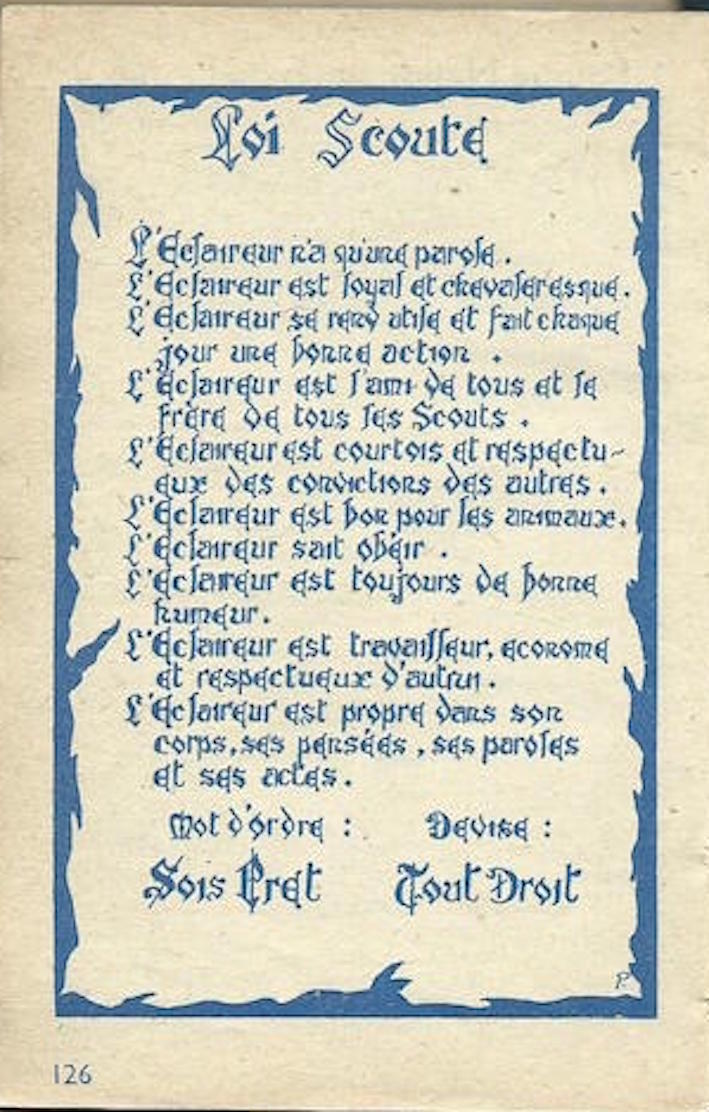 Loi Scoute
L'Eclaireur n'a qu'une parole.
L'Eclaireur est loyal et chevaleresque.
L'Eclaireur se rend utile et fait chaque
jour une bonne action.
L'Eclaireur est l'ami de tous et le
frère de tous les Scouts.
L'Eclaireur est courtois et respectu-
eux des convictions des autres.
L'Eclaireur est bon pour les animaux.
L'Eclaireur sait obéir.
L'Eclaireur est toujours de bonne
humeur.
L'Eclaireur est travailleur, econome
et respectueux d'autrui.
L'Eclaireur est propre dans son
corps, ses pensées, ses paroles
et ses actes.
Mot d'Ordre : Devise :
Sois Prêt Tout Droit
P.
126